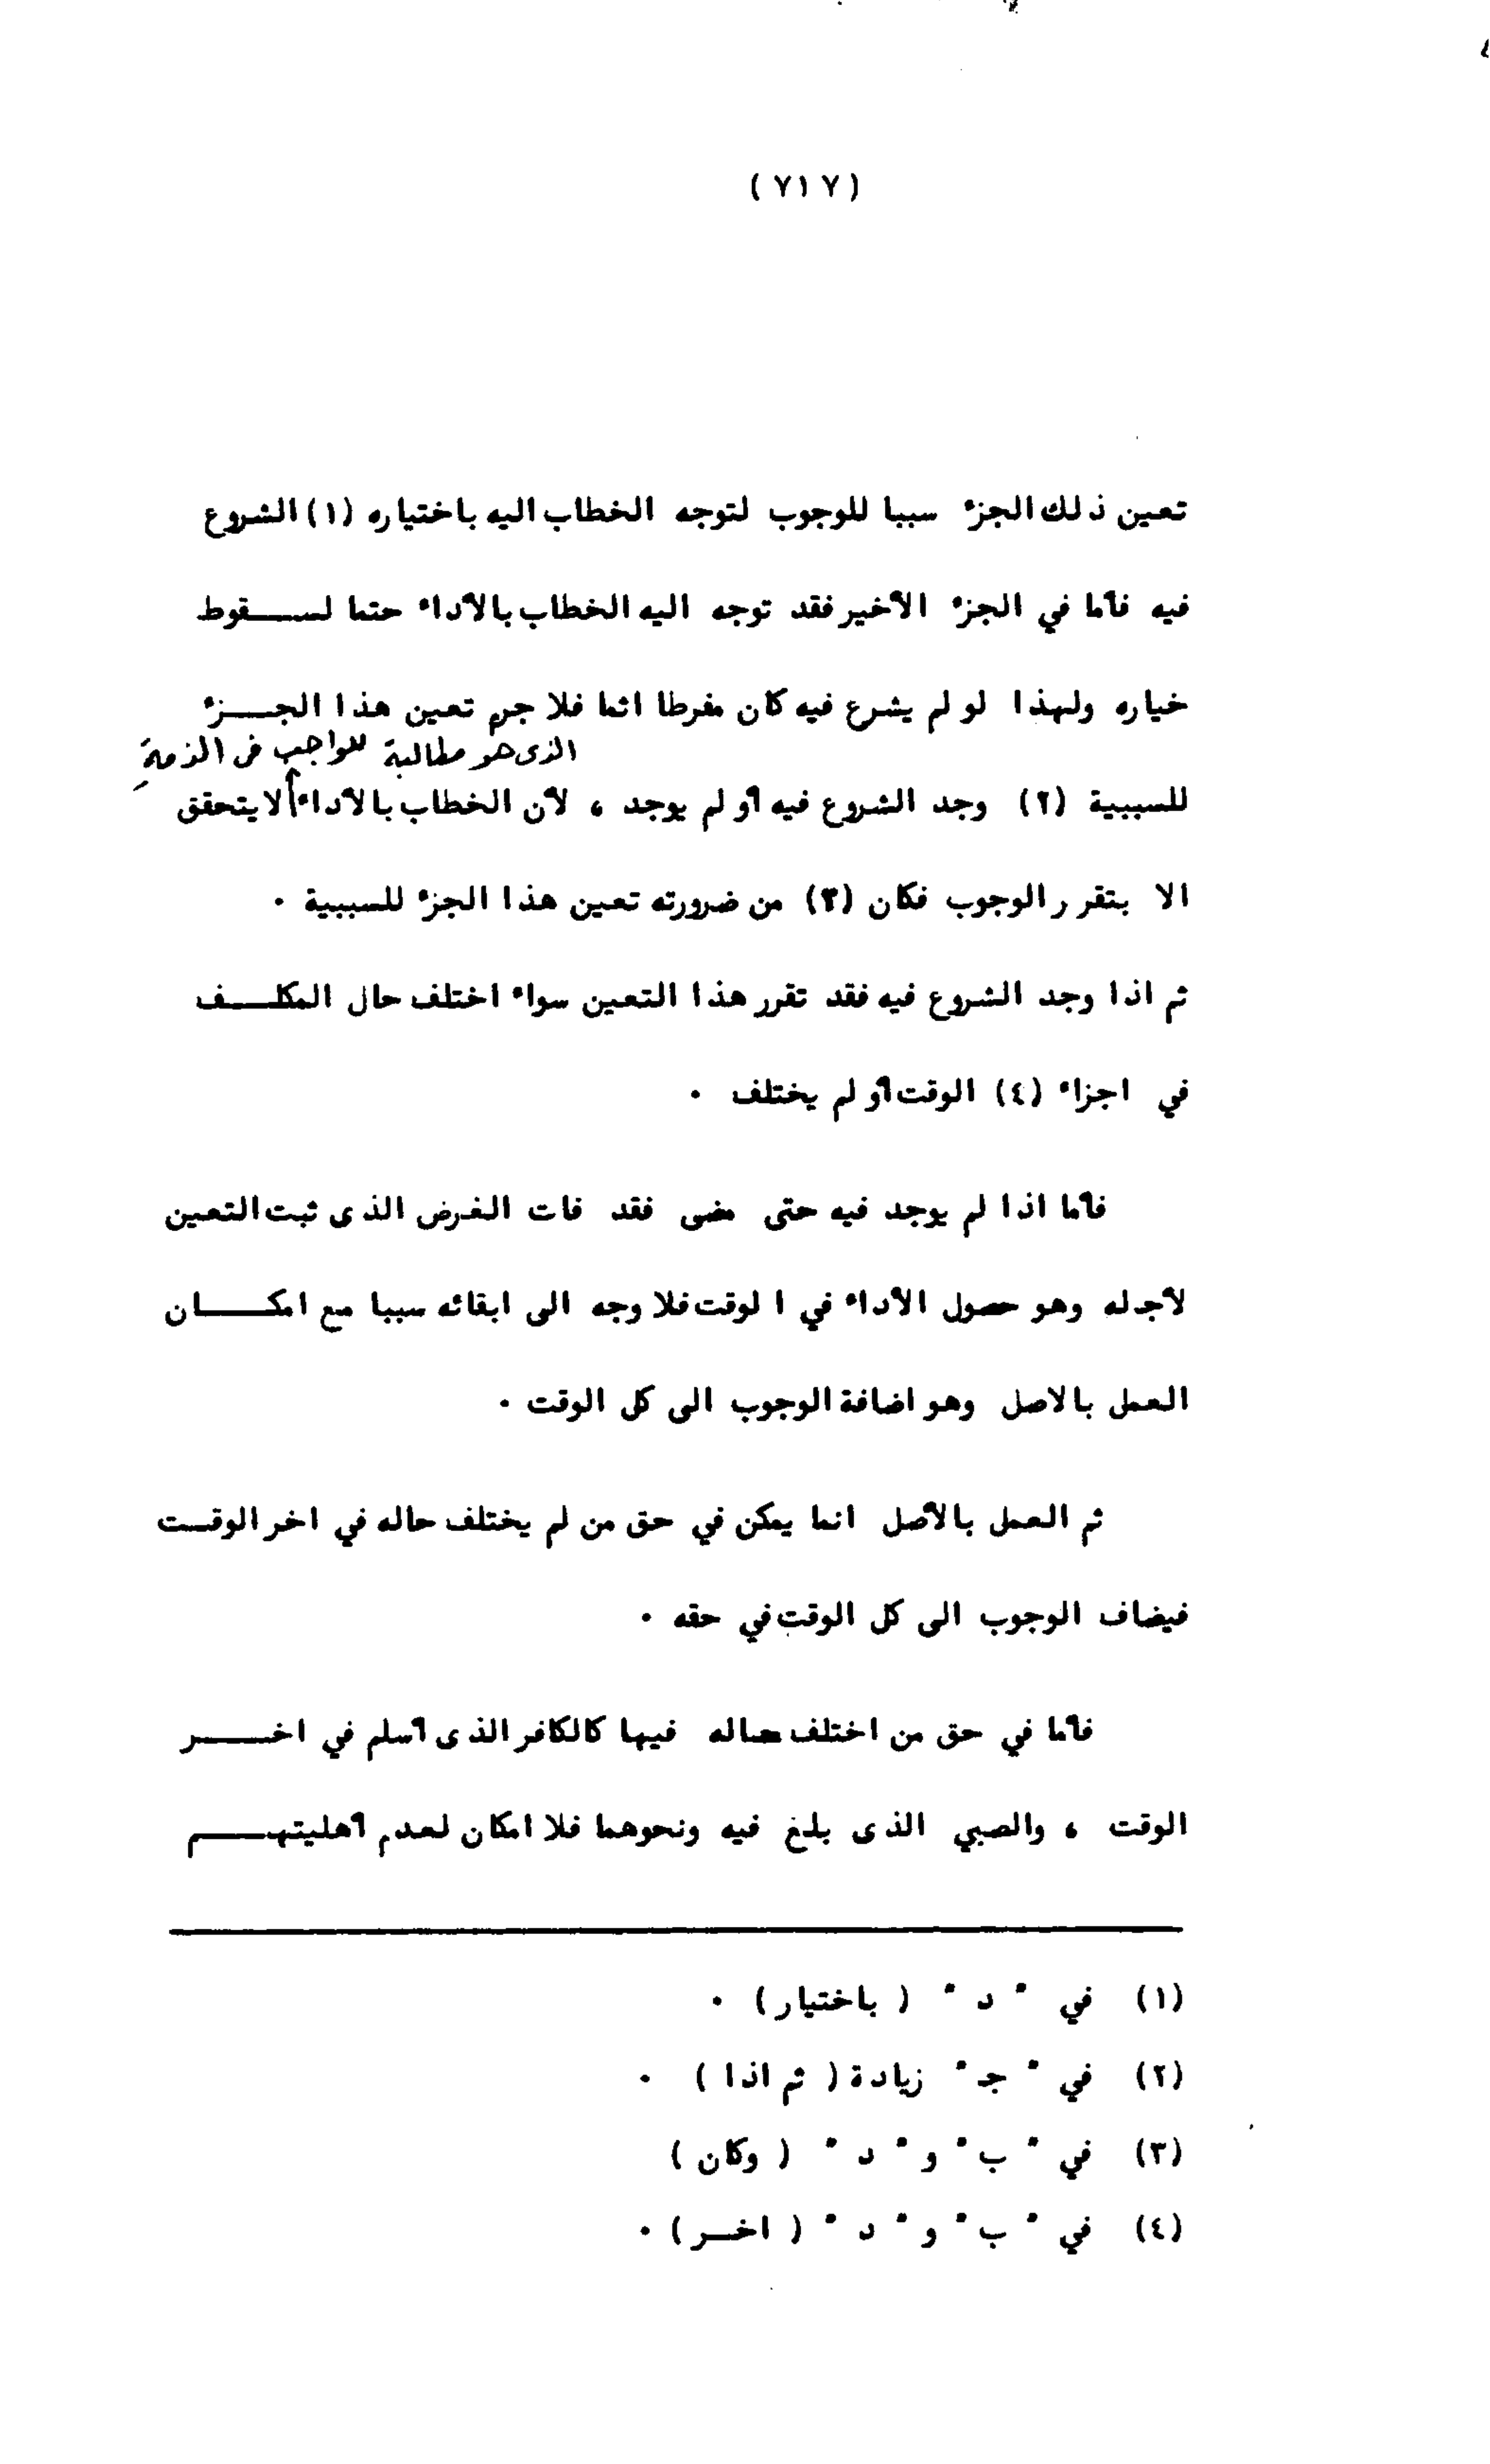 (٧١٧)
تعين ذلك الجزء سببا للوجوب لتوجه الخطاب اليه باختياره (١) الشروع
فيه فأما في الجزء الأخير فقد توجه اليه الخطاب بالأداء حتما لسـقوط
خياره ولهذا لو لم يشرع فيه كان مفرطا اثما فلا جرم تعين هذا الجـزء
الذى هو مطالبة للواجب فى الذمة
للسببية (٢) وجد الشروع فيه أو لم يوجد ، لأن الخطاب بالأداء لا يتحقق
الا بتقرر الوجوب فكان (٣) من ضرورته تعين هذا الجزء للسببية .
ثم اذا وجد الشروع فيه فقد تقرر هذا التعين سواء اختلف حال المكلـف
في اجزاء (٤) الوقت أو لم يختلف .
فأما اذا لم يوجد فيه حتى مضى فقد فات الغرض الذى ثبت التعين
لأجله وهو حصول الأداء في الوقت فلا وجه الى ابقائه سببا مع امكـان
العمل بالاصل وهو اضافة الوجوب الى كل الوقت .
ثم العمل بالأصل انما يمكن في حق من لم يختلف حاله في اخر الوقـت
فيضاف الوجوب الى كل الوقت في حقه .
فأما في حق من اختلف حاله فيها كالكافر الذى أسلم في اخـر
الوقت ، والصبي الذى بلغ فيه ونحوهما فلا امكان لعدم أهليتهـم
(١) في " د " ( باختيار ) .
(٢) في " جـ " زيادة ( ثم اذا ) .
(٣) في " ب " و " د " ( وكان )
(٤) في " ب " و " د " ( اخـر ) .